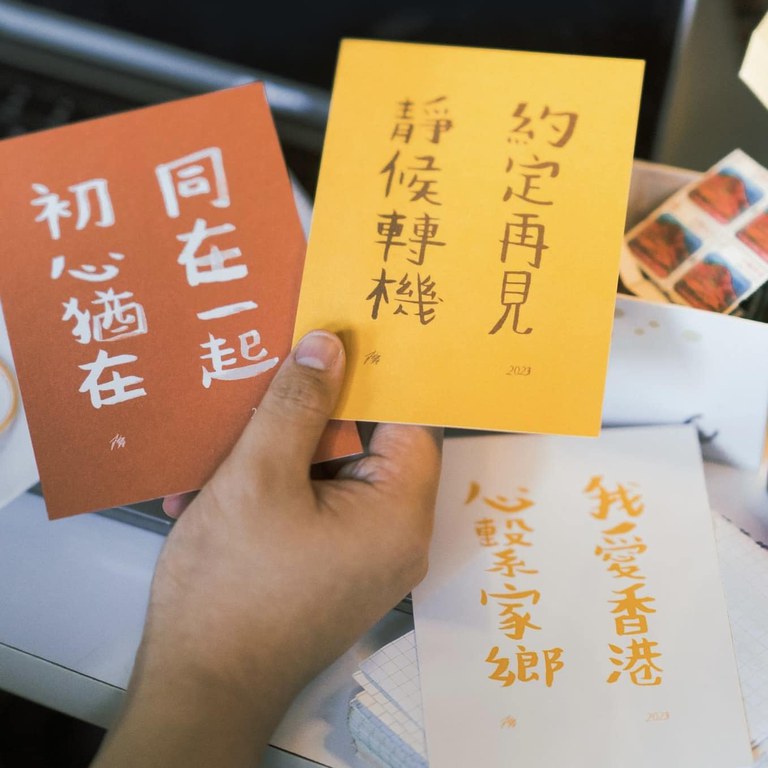 同在一起
初心猶在
約定再見
靜候轉機
2023
我愛香港
心繫家鄉
2023